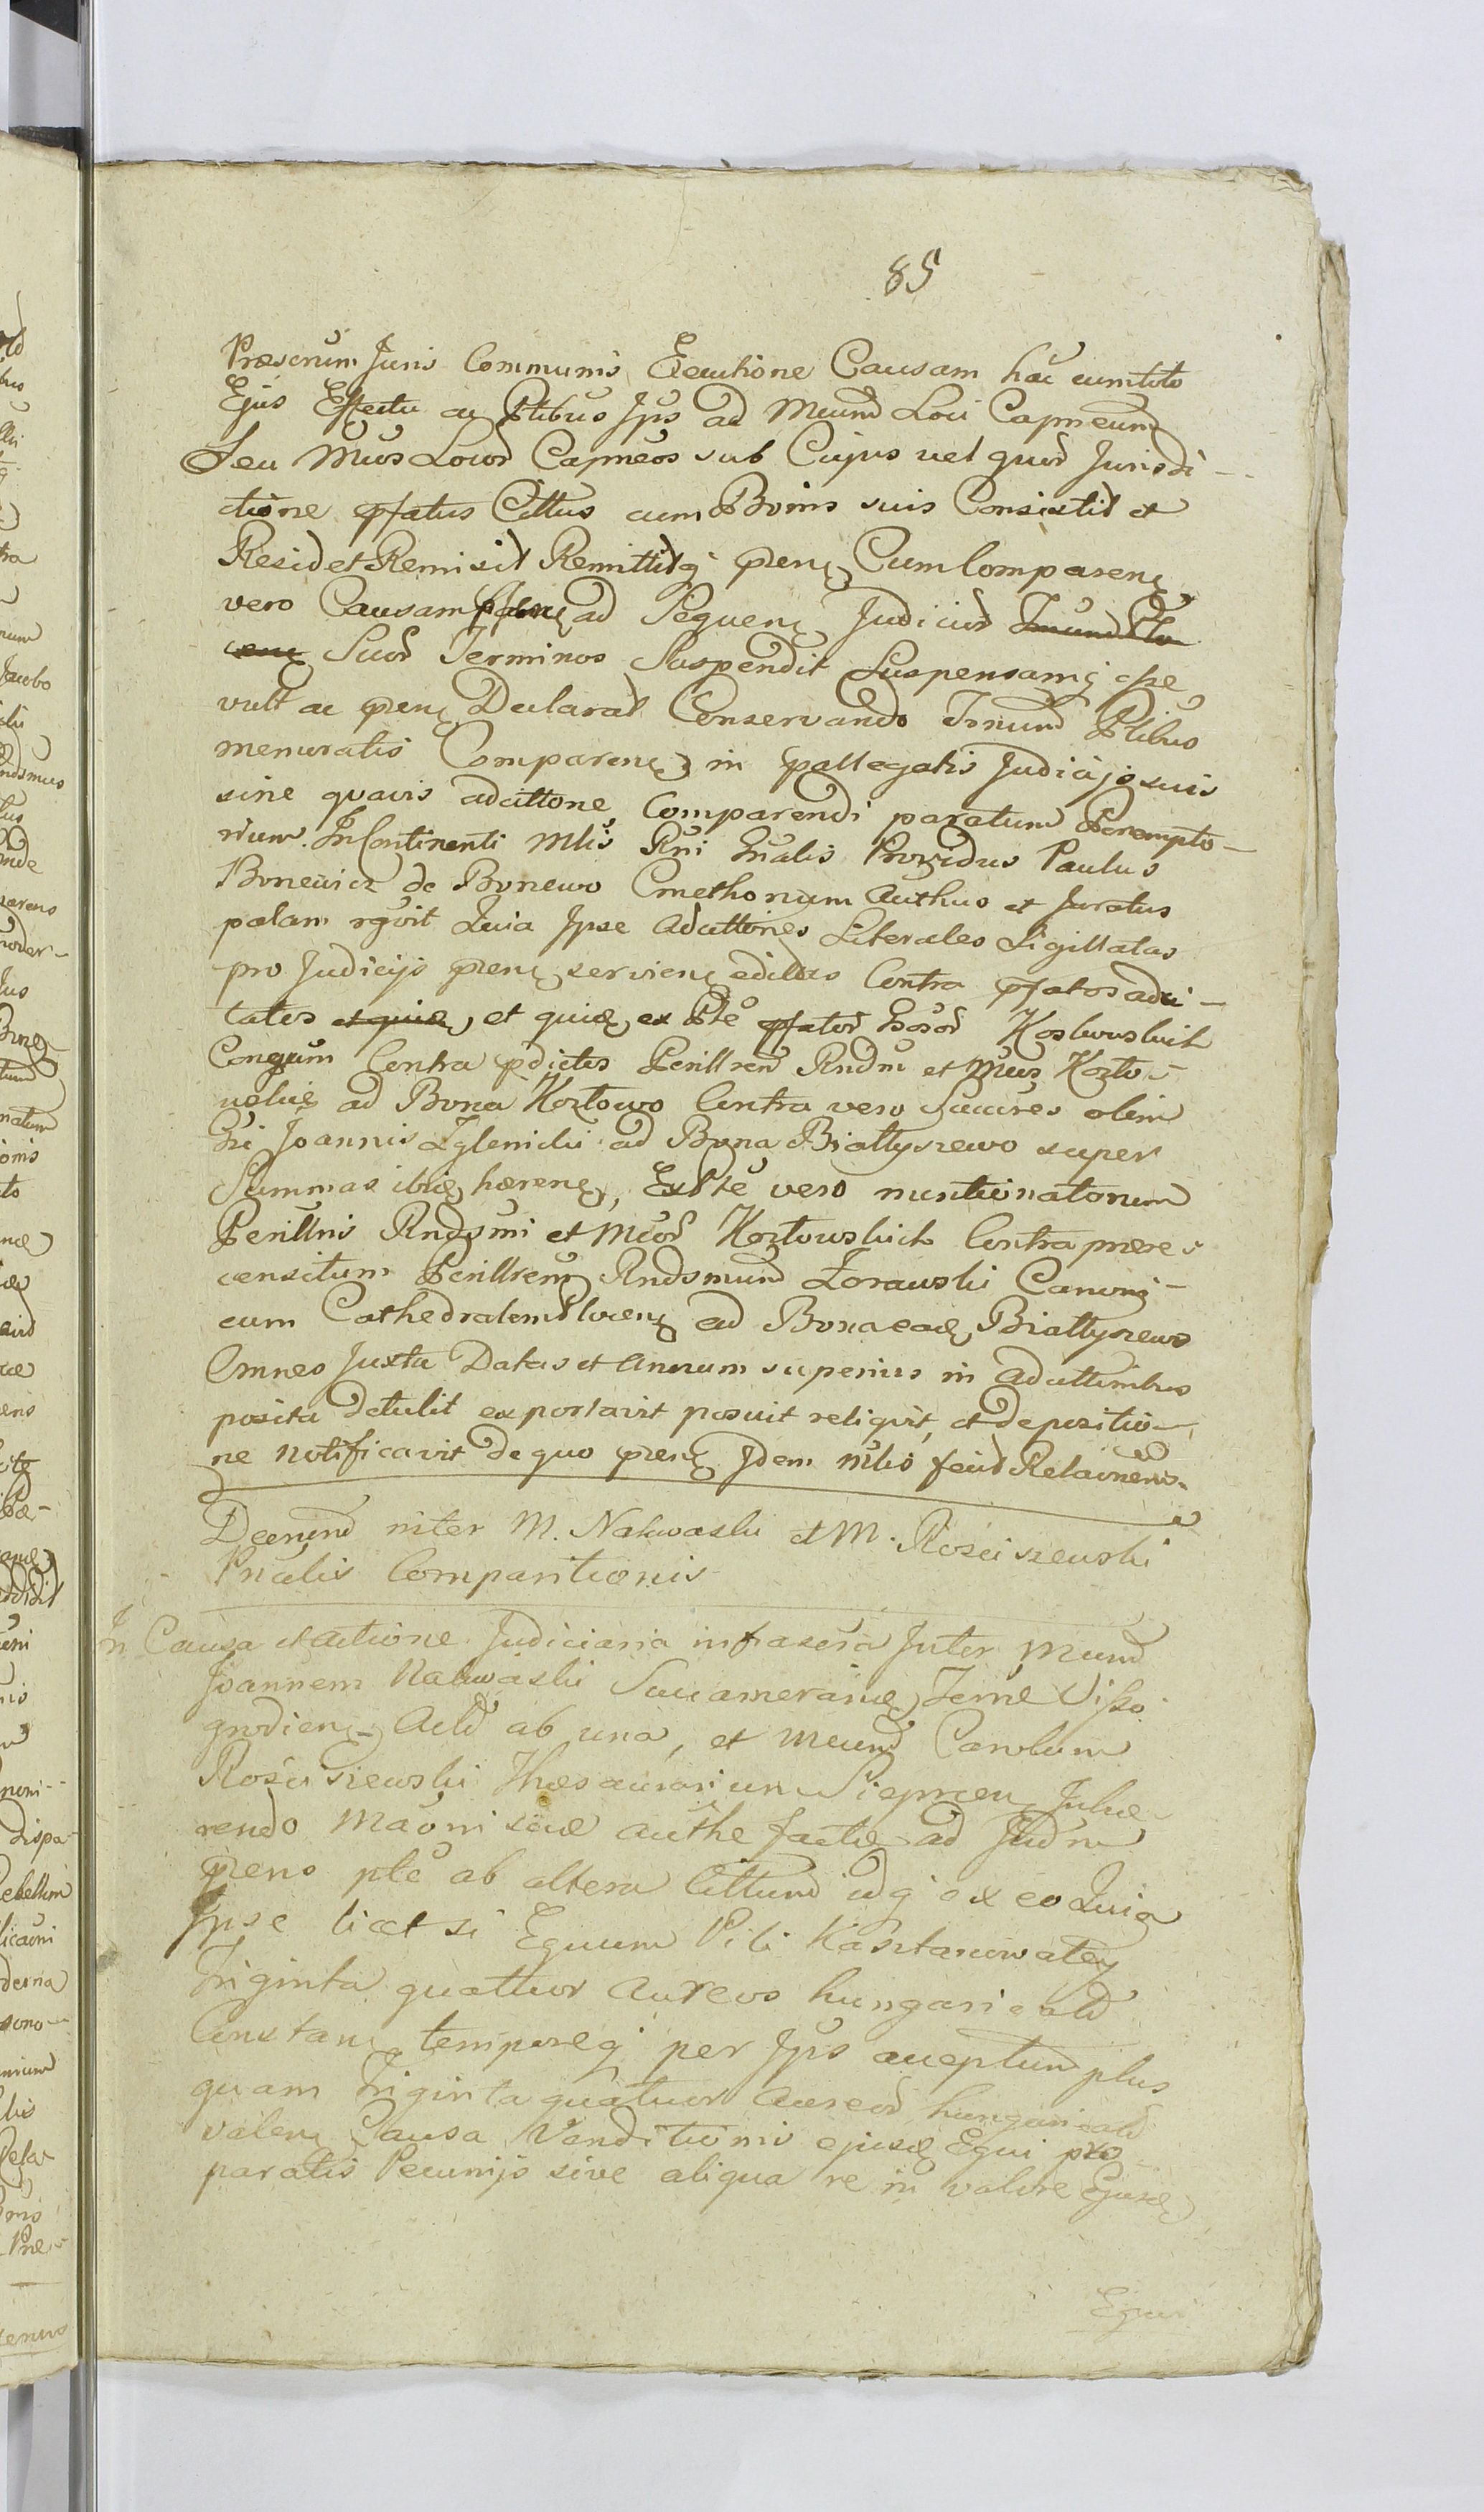 85
Præscrum Juris Communis Executione Causam hac cum toto
Ejus Effectu ac Ptibus Jps ad Mcund Loci Capneum
Seu Mcos Locor Capneos sub Cujus vel quor Jurisdi-
ctione pfatus Cittus cum Bonis suis Consistit et
Resid et Remisit Remittitq pren Cum Comparen
vero Causam ad Sequen Judicior
Suor Terminos Suspendit Suspensamq esse
vult ac pren Declarat Conservando Tnum Ptibus
memoratis Comparen in pallegatis Judicijs suis
sine quavis adcittone Comparendi paratum Perempto-
rium. In Continenti Mlis Rni Gnalis Providus Paulus
Boniewicz de Boniewo Cmethonum Authus et Juratus
palam rgvit Quia Jpse Adcittones Literales Sigillatas
pro Judicijs pren servien editas Contra pfatos adci-
tatos et quia, et quia ex Pte pfator Gosor Kosluwskich
Congum Contra pdictos Perillrem Rndm et Mcos Kozło-
wskie ad Bona Kozłowo Contra vero Succres olim
Gsi Joannis Zglenicki ad Bona Białłyszewo super
Summas ibid hæren, Ex Pte vero mentionatorum
Perillris Rndsmi et Mcor Kozłowskich Contra prære-
censitum Perillrem Rndsmum Żorawski Canoni-
cum Cathedralem Plocen ad Bona ead Białłyszewo
Omnes Juxta Datas et Annum superius in adcittonibus
posita detulit exportavit posuit reliquit, et de positio-
ne notificavit de quo pren Jdem Mlis fecit Relaonem.
Decrum inter M. Nakwaski et M. Rościszewski
Pnalis Comparitionis
In Causa et actione Judiciaria infrascra Inter Mcum
Joannem Nakwaski Succamerarid Terræ Visso
grodien Actd ab una, et Mcum Carolum
Rościszewski Thesaurarium Sieprcen Inhæ-
rendo Maoni suæ authe factæ ad Judm
prens pte ab altera Cittum idq ex eo Quia
Jpse licet si Equum Pili Kasztanowatey
Triginta quattuor aureos hungaricald
Constan temporeq per Jps acceptum plus
quam Triginta quatuor aureor hungaricald
valen Causa Venditionis ejusd Equi pro
paratis Pecunijs sive aliqua re in valore Ejusd
Equi